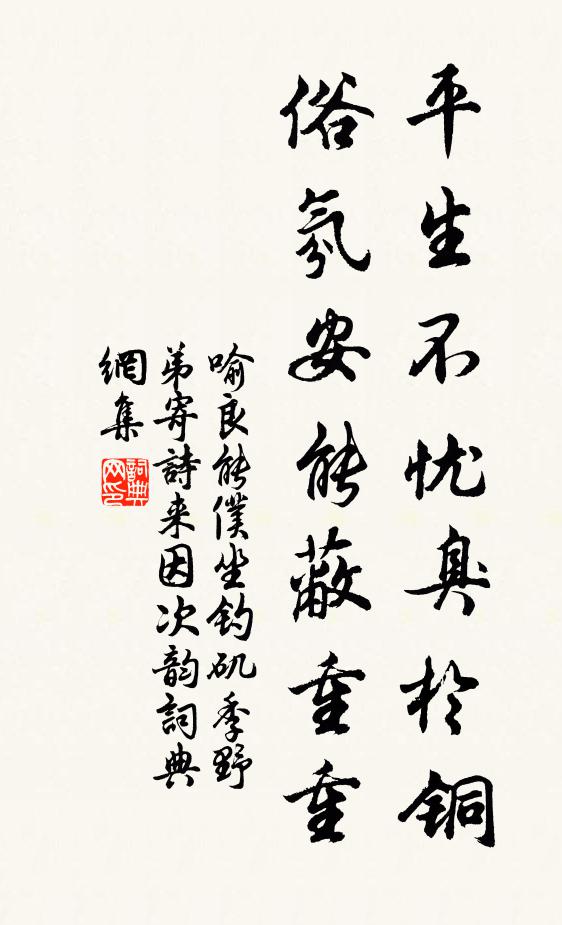 平生不忧臭於铜
俗氛安能蔽重重
喻良能僕坐钓矶季野
弟寄詩来因次韵詞典
網集
詞典网印